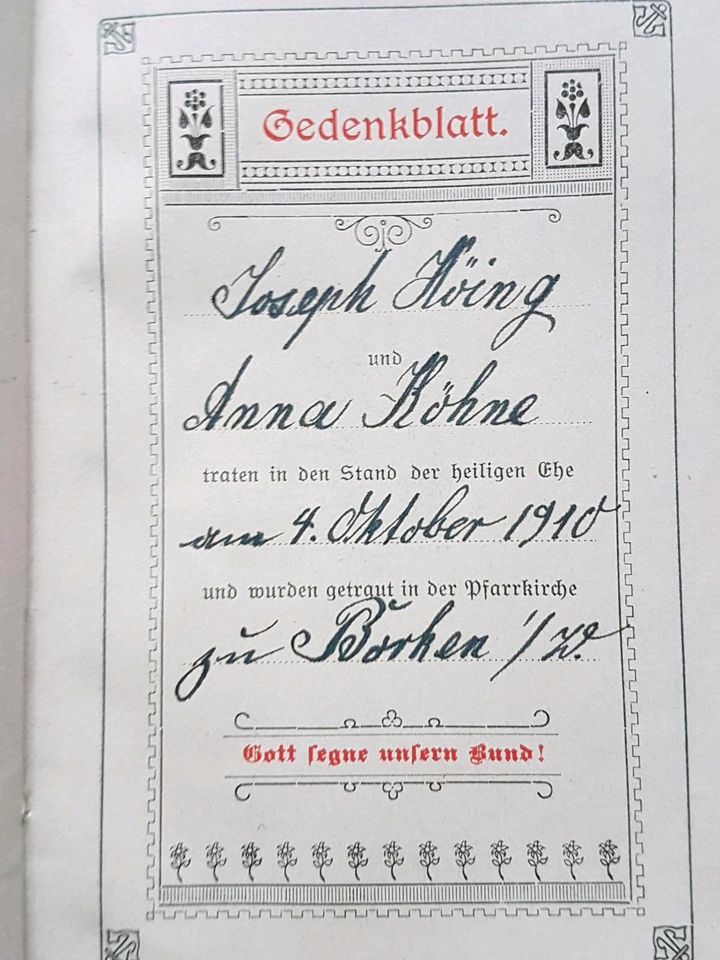 Gedenkblatt.
Joseph Höing
und
Anna Köhne
traten in den Stand der heiligen Ehe
am 4. Oktober 1910
und wurden getraut in der Pfarrkirche
zu Borken i/W.
Gott segne unsern Bund!